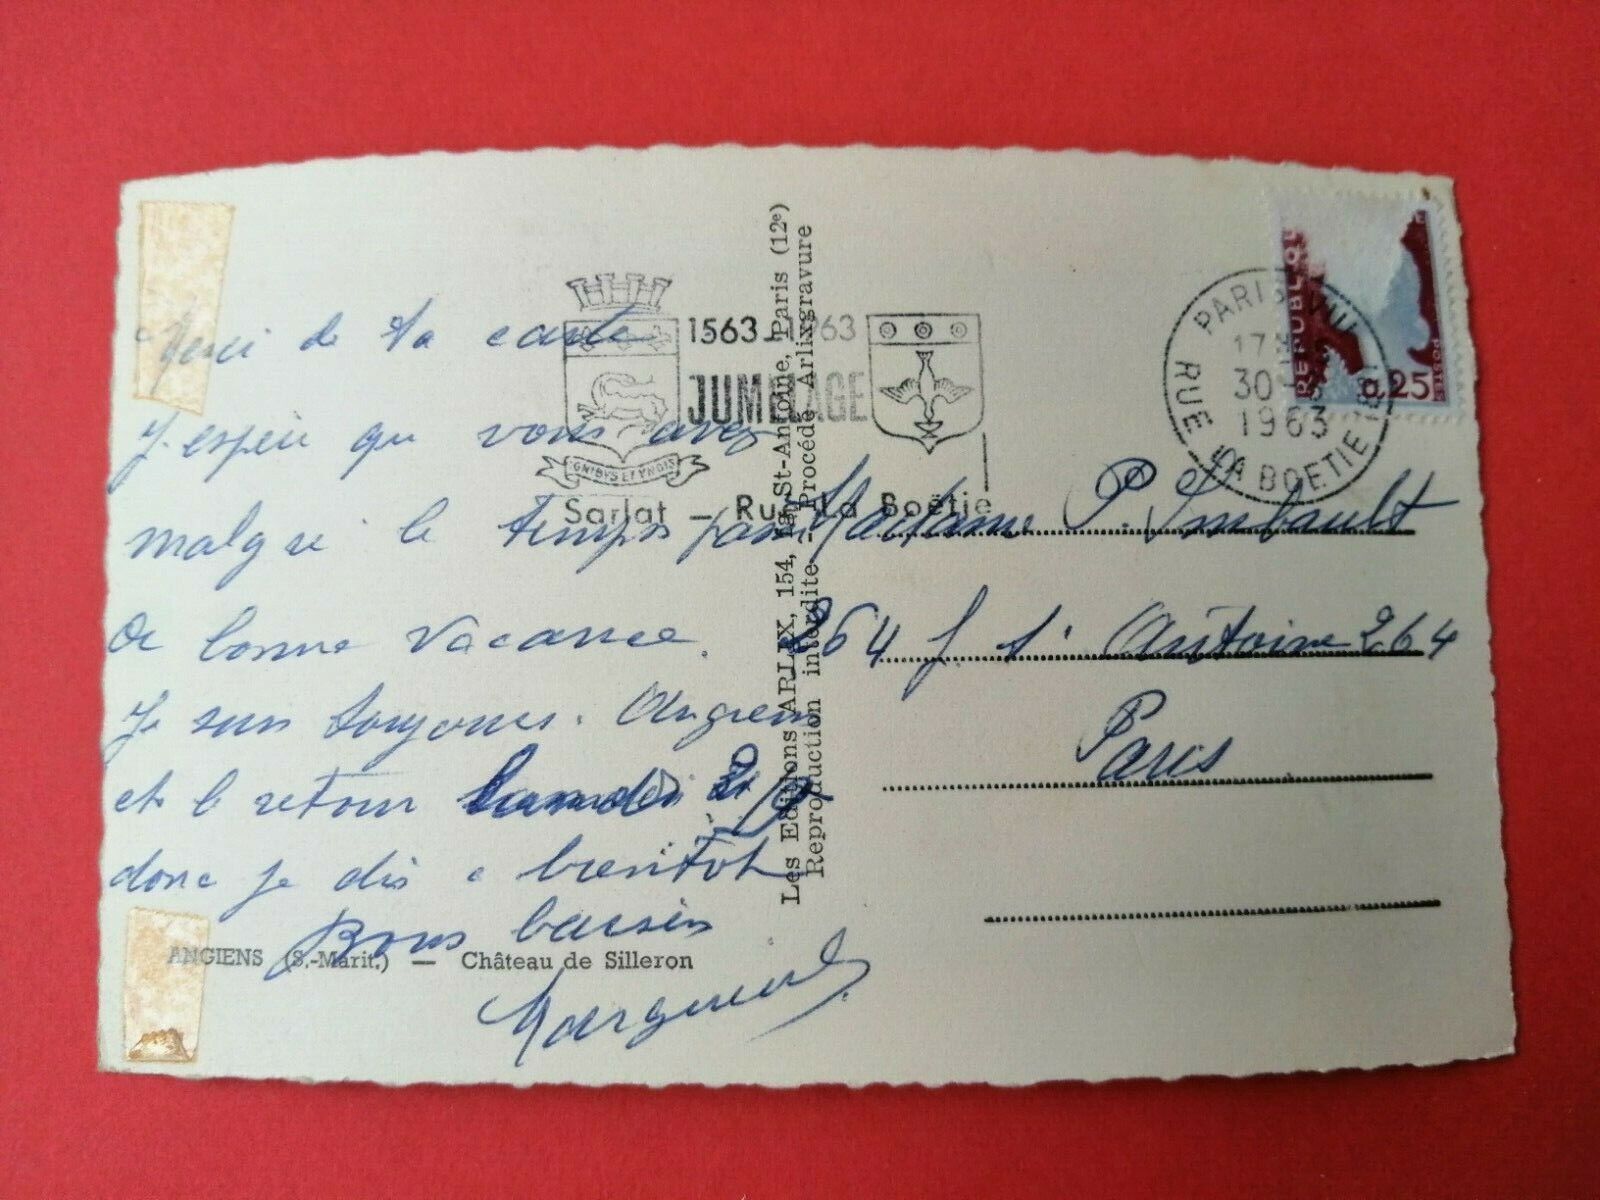 Merci de ta carte
J. espère que vous avez
malgré le temps passé
de bonne vacance.
Je suis toujours. Angiens
et le retour Lundi 2
donc je dis a bientot
Bons baisers
ANGIENS (S.-Marit.) — Château de Silleron
1563-1963
JUMELAGE
IGNIBUS ET ENSIS
Sarlat — Rue La Boëtie
Les Editions ARLIX, 154, St-Antoine, Paris (12e)
Reproduction interdite - Procédé Arlixgravure
PARIS VIII
17H
30 - 8
1963
RUE LA BOETIE
REPUBLIQUE
POSTES
0,25
Madame P. Imbault
264 f St Antoine 264
Paris